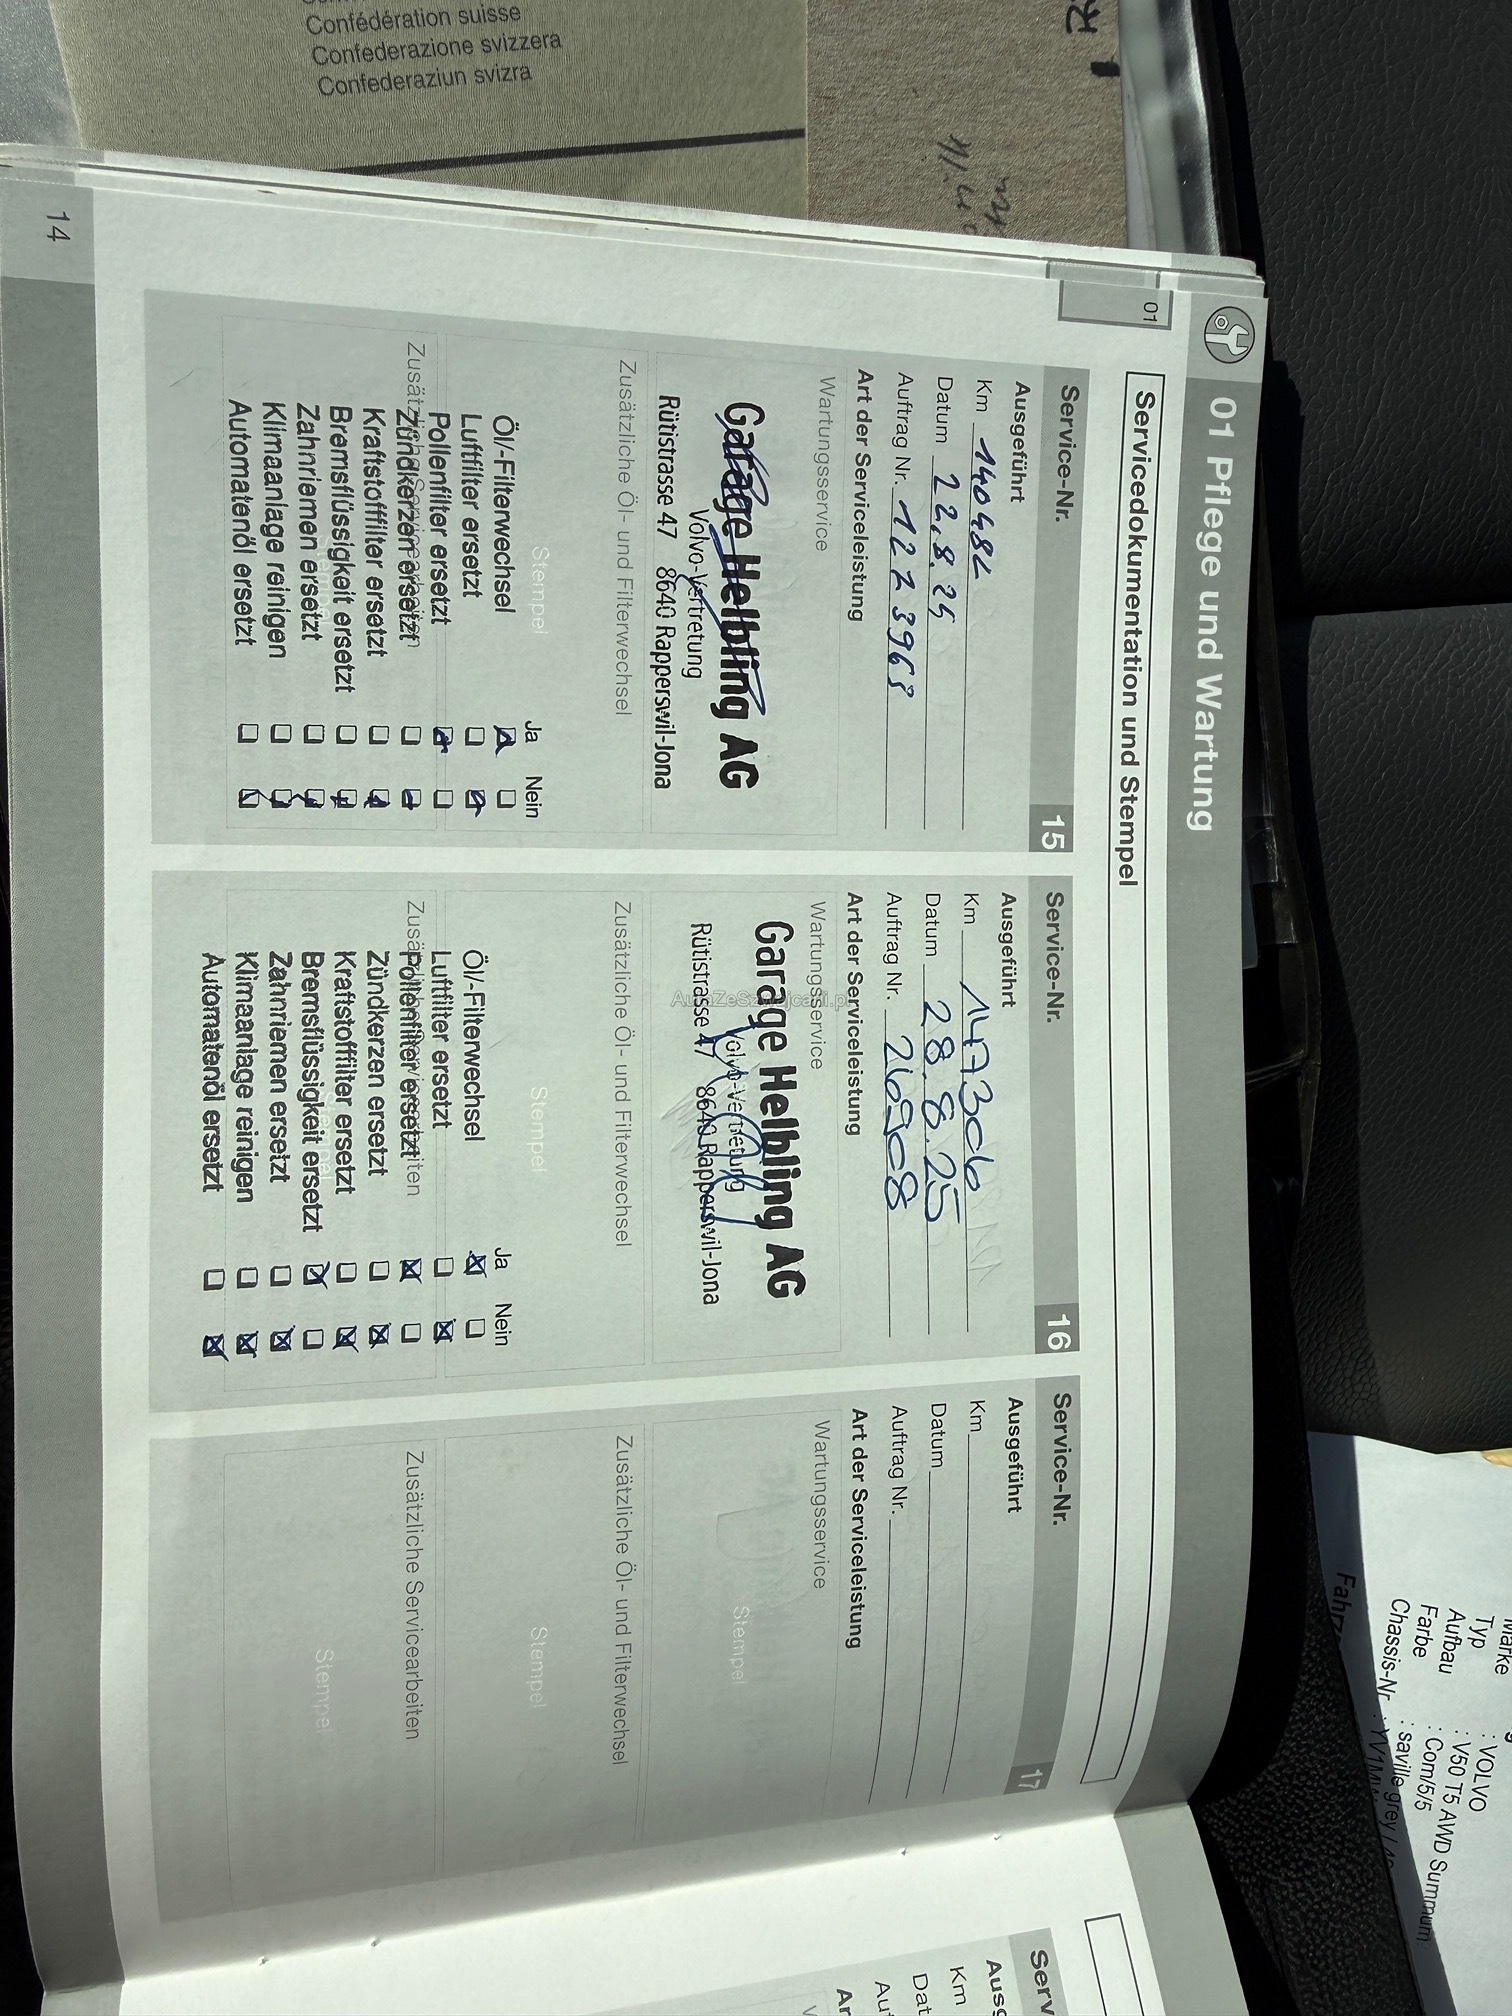 Confédération suisse
Confederazione svizzera
Confederaziun svizra
01 Pflege und Wartung
01
Servicedokumentation und Stempel
Service-Nr. 15
Ausgeführt
Km 140482
Datum 22.8.24
Auftrag Nr.
Art der Serviceleistung
Wartungsservice
Garage Helbling AG
Volvo-Vertretung
Rütistrasse 47 8640 Rapperswil-Jona
Zusätzliche Öl- und Filterwechsel
Stempel
Ja Nein
Öl/-Filterwechsel
Luftfilter ersetzt
Pollenfilter ersetzt
Zündkerzen ersetzt
Kraftstofffilter ersetzt
Bremsflüssigkeit ersetzt
Zahnriemen ersetzt
Klimaanlage reinigen
Automatenöl ersetzt
Service-Nr. 16
Ausgeführt
Km
Datum 28.8.25
Auftrag Nr. 216908
Art der Serviceleistung
Wartungsservice
Garage Helbling AG
Volvo-Vertretung
Rütistrasse 47 8640 Rapperswil-Jona
AutaZeSzwajcarii.pl
Zusätzliche Öl- und Filterwechsel
Stempel
Ja Nein
Öl/-Filterwechsel
Luftfilter ersetzt
Pollenfilter ersetzt
Zündkerzen ersetzt
Kraftstofffilter ersetzt
Bremsflüssigkeit ersetzt
Zahnriemen ersetzt
Klimaanlage reinigen
Automatenöl ersetzt
Service-Nr. 17
Ausgeführt
Km
Datum
Auftrag Nr.
Art der Serviceleistung
Wartungsservice
Stempel
Zusätzliche Öl- und Filterwechsel
Stempel
Zusätzliche Servicearbeiten
Stempel
14
Marke : VOLVO
Typ : V50 T5 AWD Summum
Aufbau : Com/5/5
Farbe : saville grey /
Chassis-Nr. : YV1M